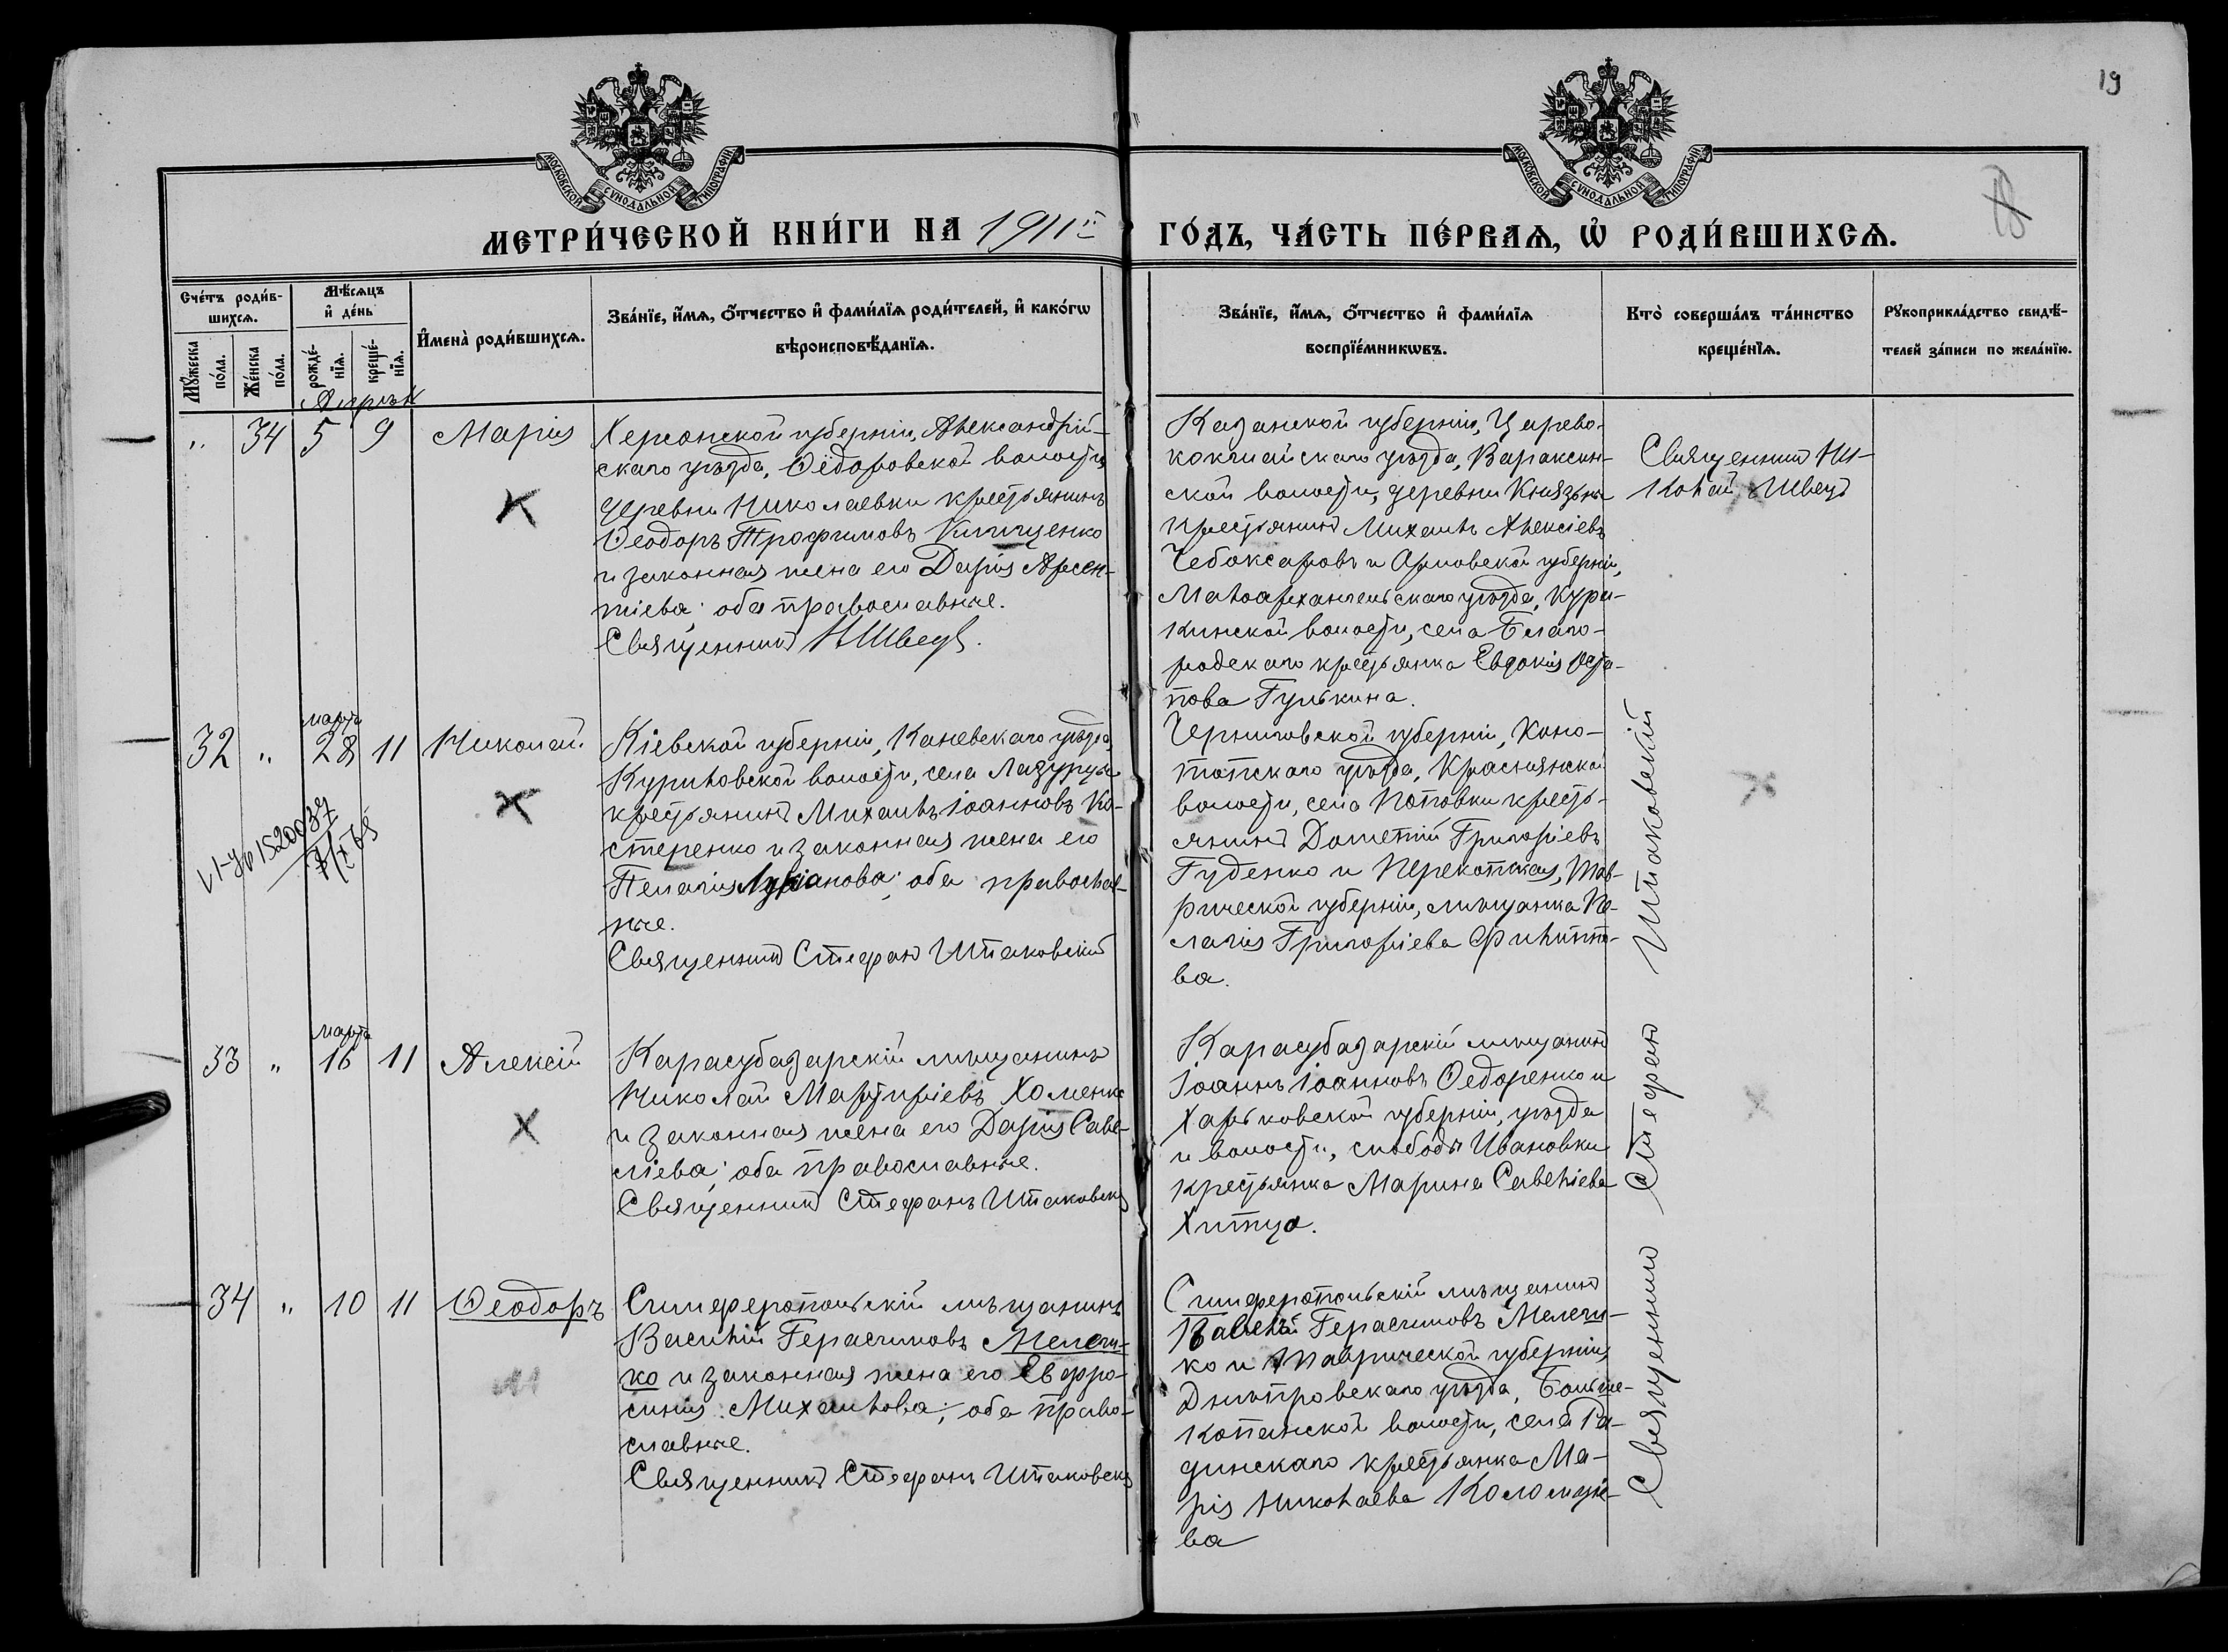 19
18
МОСКОВСКОЙ СѴНОДАЛЬНОЙ ТИПОГРАФІИ
МОСКОВСКОЙ СѴНОДАЛЬНОЙ ТИПОГРАФІИ
МЕТРИ́ЧЕСКОЙ КНИ́ГИ НА 1911й ГО́ДЪ, ЧА́СТЬ ПЕ́РВАѦ, Ѡ҆ РОДИ́ВШИХСѦ.
Сче́тъ роди́в-
шихсѧ.
Мꙋ́жеска по́ла.
Же́нска по́ла.
Мѣ́сѧцъ
и҆ де́нь
рожде́-
нїѧ.
креще́-
нїѧ.
И҆мена̀ роди́вшихсѧ.
Зва́нїе, и҆́мѧ, ѻ҆́тчество и҆ фами́лїѧ роди́телей, и҆ како́гѡ
вѣроисповѣ́данїѧ.
Зва́нїе, и҆́мѧ, ѻ҆́тчество и҆ фами́лїѧ
воспрїе́мникѡвъ.
Кто̀ соверша́лъ та́инство
креще́нїѧ.
Рꙋкоприкла́дство свидѣ́-
телей за́писи по жела́нїю.
Апрѣль
" 34 5 9 Марія
Херсонской губерніи, Александрій-
скаго уѣзда, Ѳедоровской волости,
деревни Николаевки крестьянинъ
Ѳеодоръ Трофимовъ Клищенко
и законная жена его Дарія Арсен-
тіева; оба православные.
Священникъ Н Швецъ.
Казанской губерніи, Царево-
кокшайскаго уѣзда, Вараксин-
ской волости, деревни Князьна
крестьянинъ Михаилъ Алексіевъ
Чебоксаровъ и Орловской губерніи,
Малоархангельскаго уѣзда, Кура-
кинской волости, села Благо-
родскаго крестьянка Евдокія Оста-
пова Гулькина.
Священникъ Ни-
колай Швецъ
32 " марта 28 11 Николай
VI-УБ 152003
Кіевской губерніи, Каневскаго уѣзда,
Куриловской волости, села Лазурцы
крестьянинъ Михаилъ Іоанновъ Ко-
стеренко и законная жена его
Пелагія Лукіанова; оба православ-
ные.
Священникъ Стефанъ Шпаковскій
Черниговской губерніи, Коно-
топскаго уѣзда, Краснянской
волости, села Поповки кресть-
янинъ Дометій Григоріевъ
Гуденко и Перекопская, Тав-
рической губерніи, мѣщанка Пе-
лагія Григоріева Филиппо-
ва.
33 " марта 16 11 Алексій
Карасубазарскій мѣщанинъ
Николай Мартиріевъ Хоменко
и законная жена его Дарія Саве-
ліева; оба православные.
Священникъ Стефанъ Шпаковскій
Карасубазарскій мѣщанинъ
Іоаннъ Іоанновъ Ѳедоренко и
Харьковской губерніи, уѣзда
и волости, слободы Ивановки
крестьянка Марина Савеліева
Хитца.
34 " 10 11 Ѳеодоръ
Симферопольскій мѣщанинъ
Василій Герасимовъ Мелеш-
ко и законная жена его Евфро-
синія Михаилова; оба право-
славные.
Священникъ Стефанъ Шпаковскій
Симферопольскій мѣщанинъ
Герасимовъ Мелеш-
ко и Таврической губерніи,
Днѣпровскаго уѣзда, Больше-
копанской волости, села Ра-
динскаго крестьянка Ма-
рія Николаева Коломуй-
ва
Священникъ Стефанъ Шпаковскій